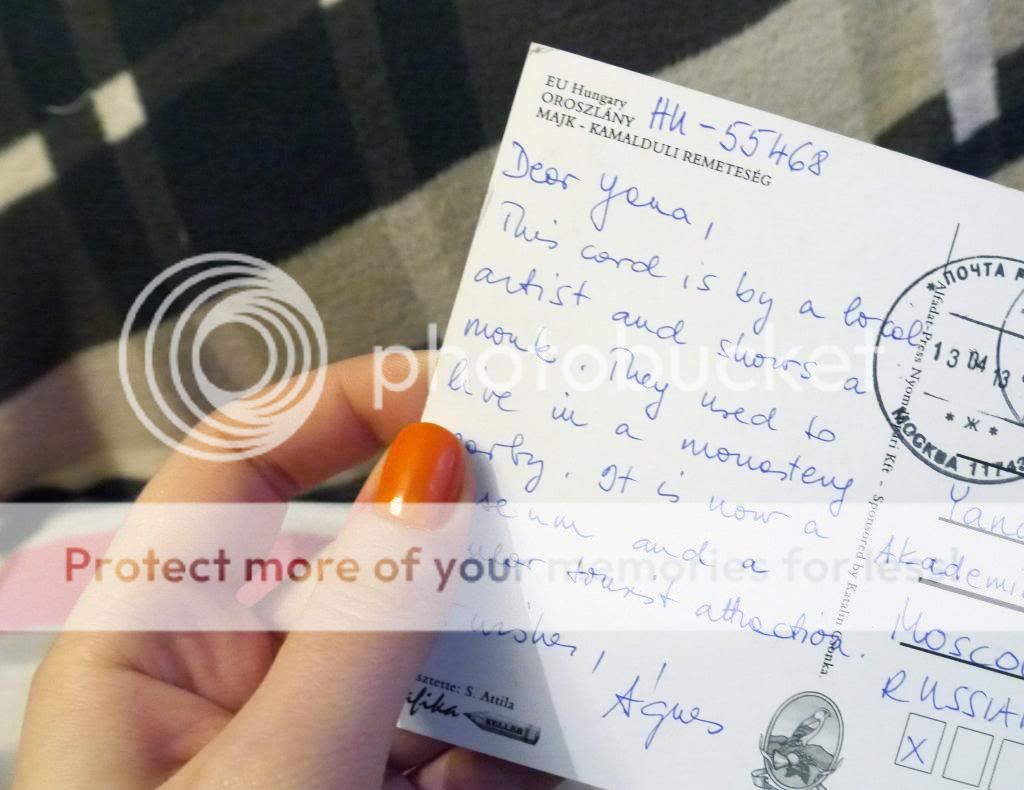 EU Hungary
OROSZLÁNY
MAJK - KAMALDULI REMETESÉG
HU-55468
Dear Yana,
This card is by a local
artist and shows a
monk. They used to
live in a monastery
It is now a
and a
tourist attraction.
Ágnes
S. Attila
KELLER
Alfadat-Press
Kft - Sponsored by Katalin
ПОЧТА
13 04 13
* Ж *
МОСКВА
Moscow
RUSSIA
X
photobucket
Protect more of your memories for less!